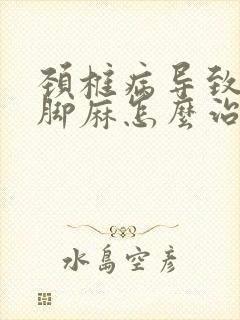 颈椎病导致
脚麻怎麼治
水島空彦